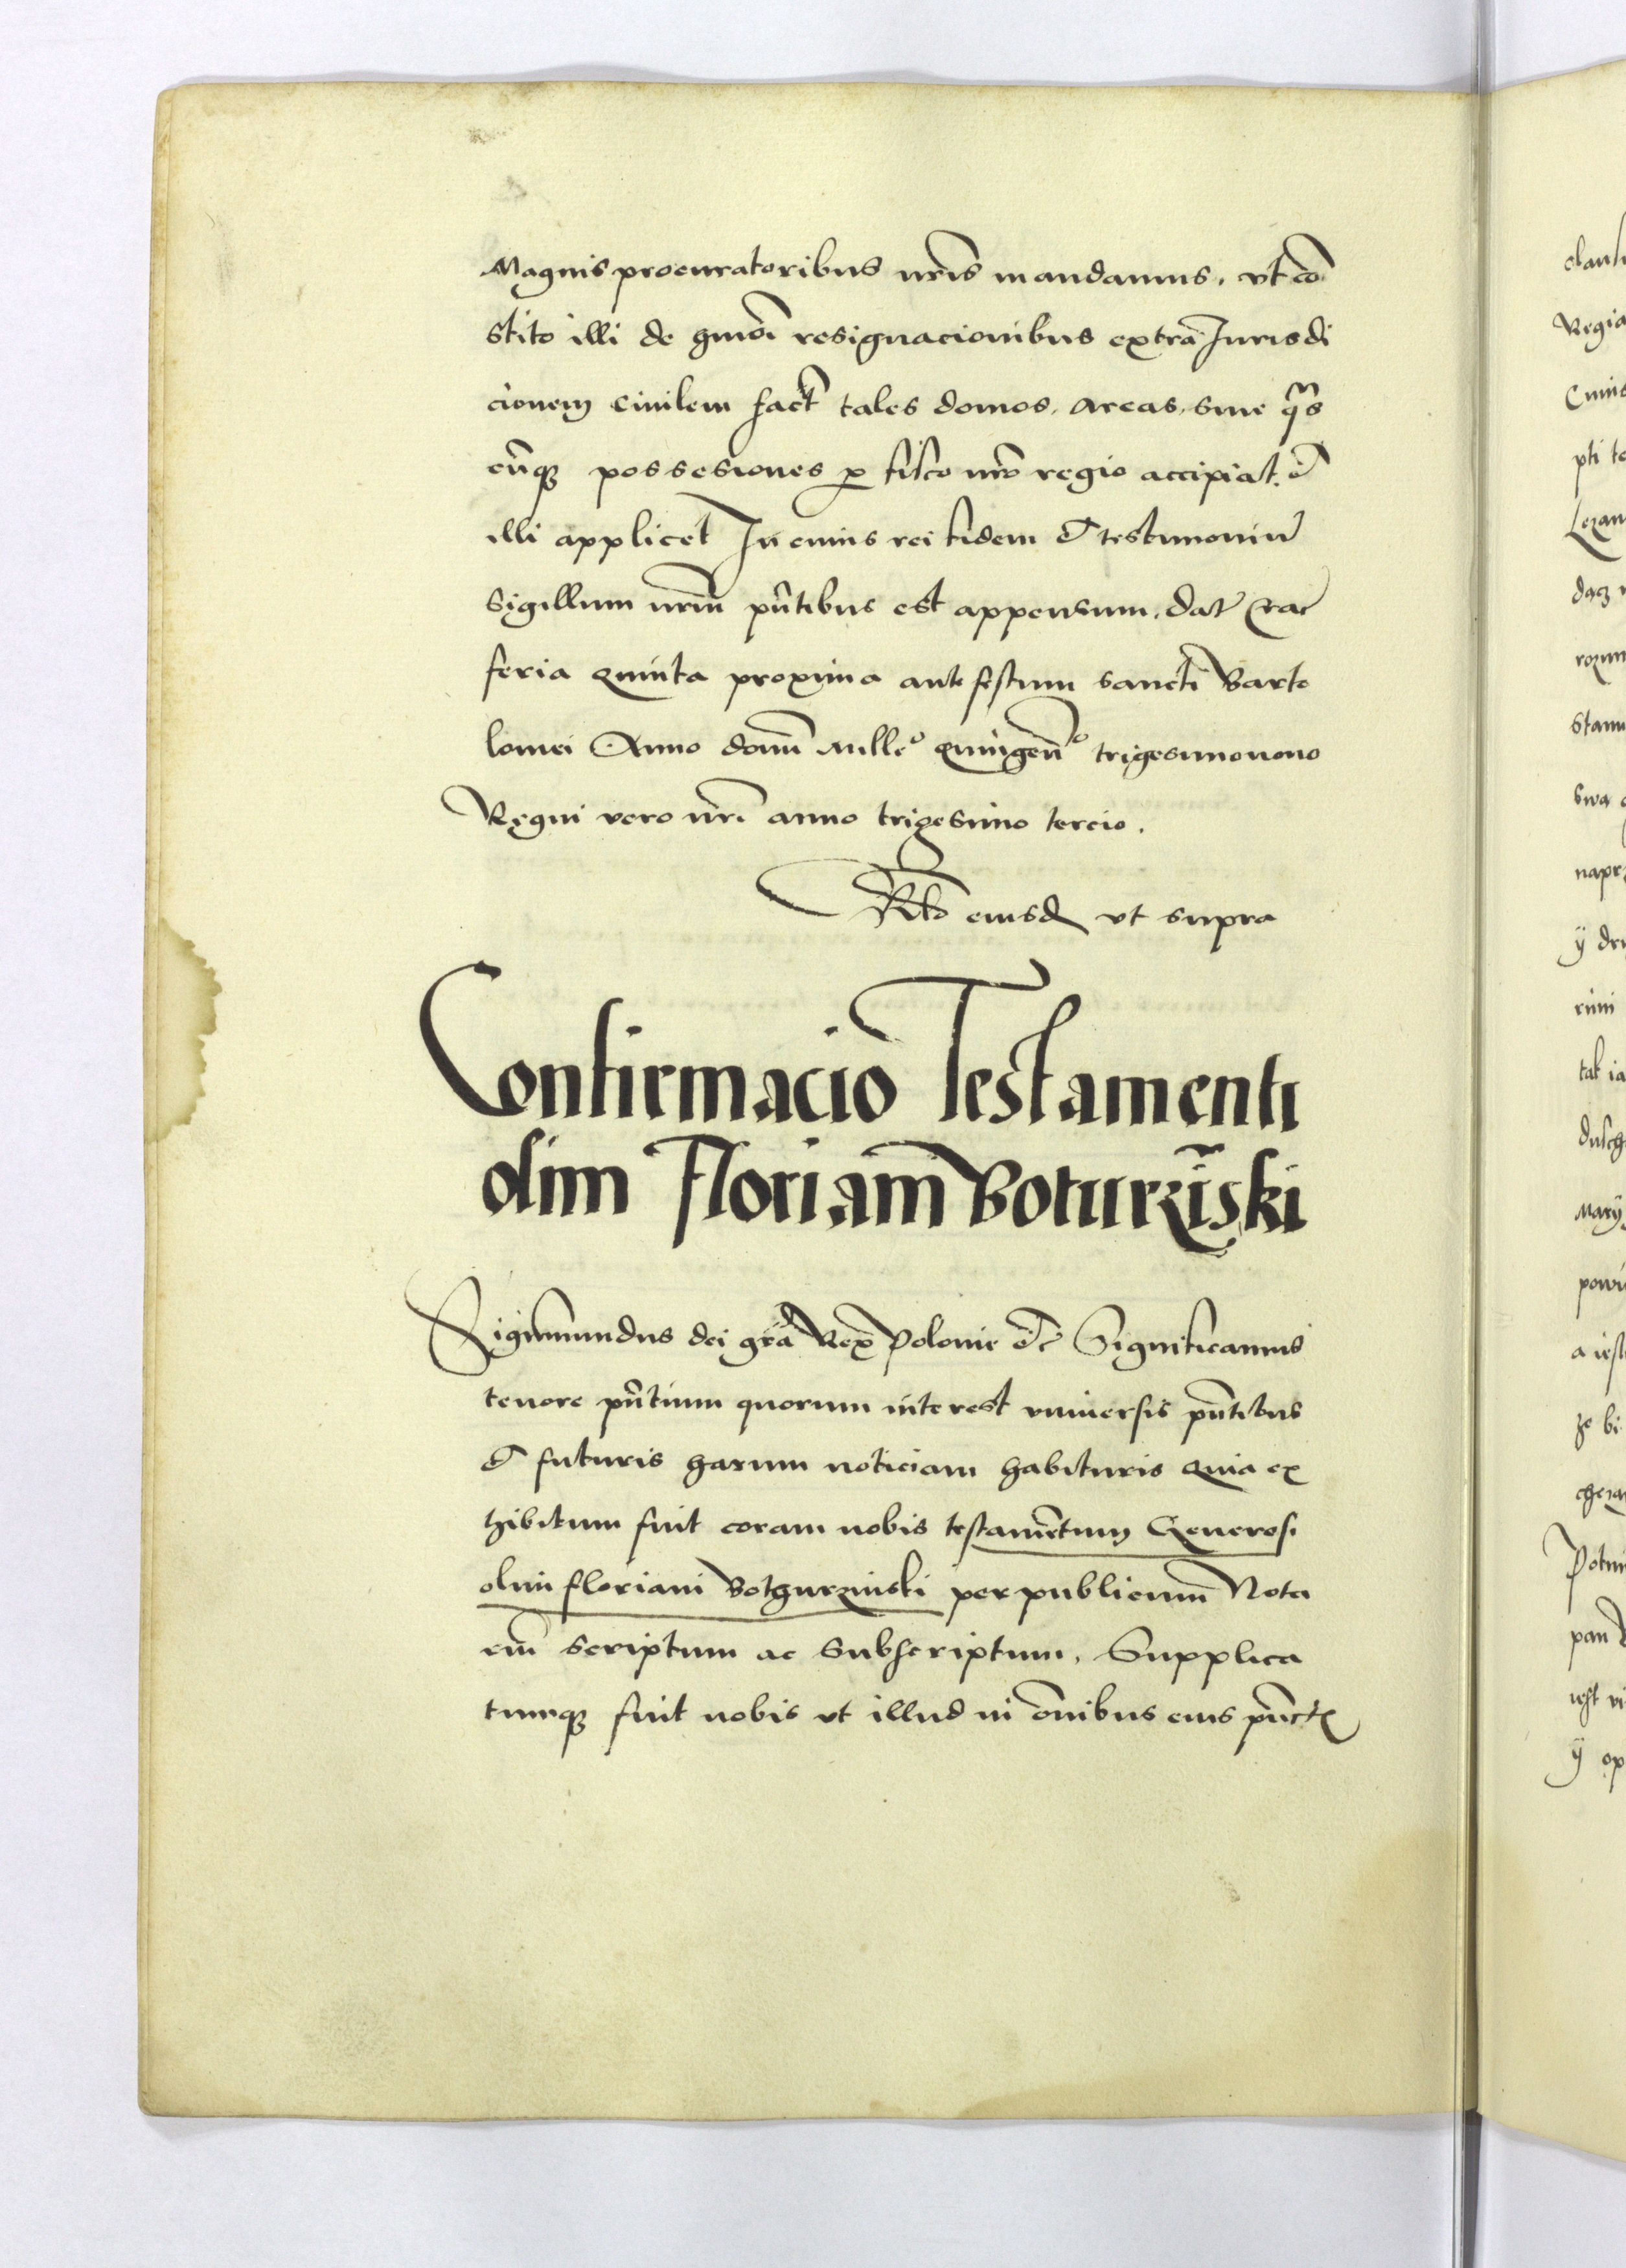 Magnis procuratoribus nr̃is mandamus, vt cõ
stito illi de hmõi resignacionibus extra Iurisdi
cionem Ciuilem fact̃ tales domos, areas, siue q̃s
cũqꝫ possesiones ꝓ fisco nrõ regio accipiat, et
illi applicet In cuius rei fidem et testimoniũ
Sigillum nrũm pñtibus est appensum. Dat̃ Crac̃
feria quinta proxima ante festum sancti Barto
lomei Anno domĩ Milleᵒ quingenᵒ trigesimonono
Regni vero nrĩ anno trigesimo tercio.
Rlo eiusd̃ vt supra
Confirmacio Testamenti
olim Floriani Boturzĩski
Sigismundus dei gr̃a Rex Polonie etc̃ Significamus
tenore pñtium quorum interest vniuersis pñtibus
et futuris harum noticiam habituris quia ex
hibitum fuit coram nobis testamẽtum Generosi
olim floriani Bothurzinski per publicum Nota
riũ scriptum ac subscriptum, Supplica
tumqꝫ fuit nobis vt illud in õnibus eius pũctꝭ
Regia
pti
Lezan
rozum
Stanu
swa
napr
ÿ dr
rimi
tak ia
dusch
Marÿ
powi
a iest
ze bi
Potur
pan
iest
ÿ op